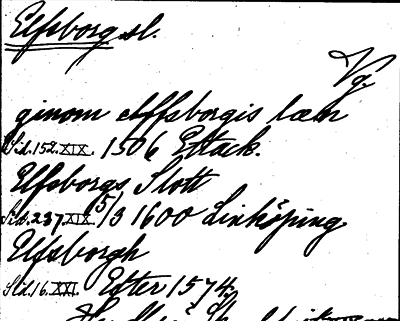 Elfsborg sl.
Vg.
ginom elffsborgis læn
Sid. 152. XIX. 1506 Ettack.
Elfsborgs Slott
Sid. 237. XIX 5/3 1600 Linköping
Elfsborgh
Sid. 16. XXI. Efter 1574.